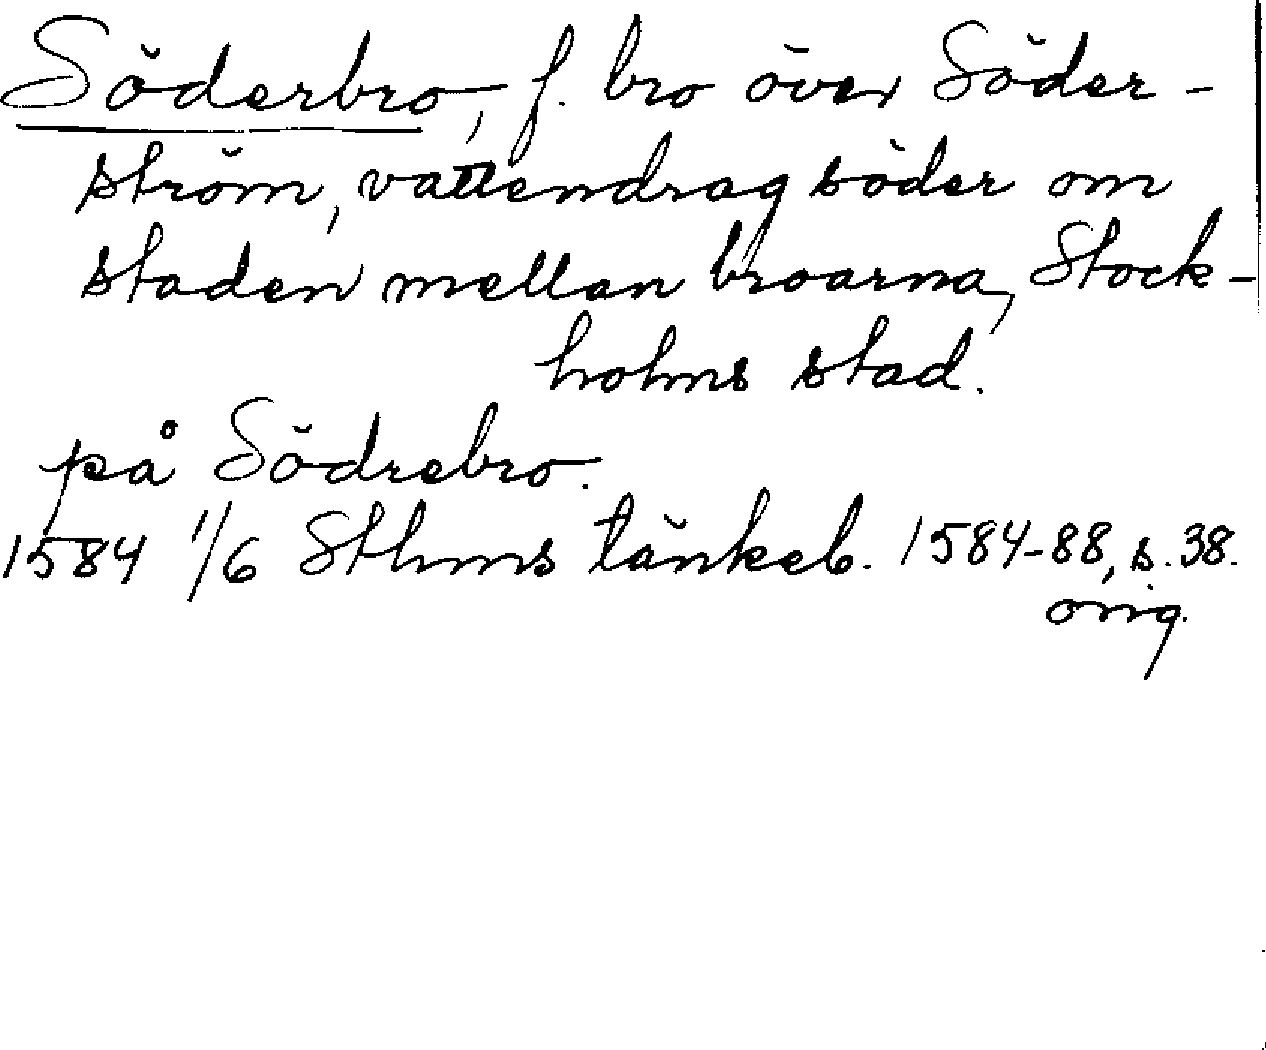 Söderbro, f. bro över Söder-
ström, vattendrag söder om
staden mellan broarna, Stock-
holms stad.
på Södrebro.
1584 1/6 Sthms tänkeb. 1584-88, s. 38.
orig.